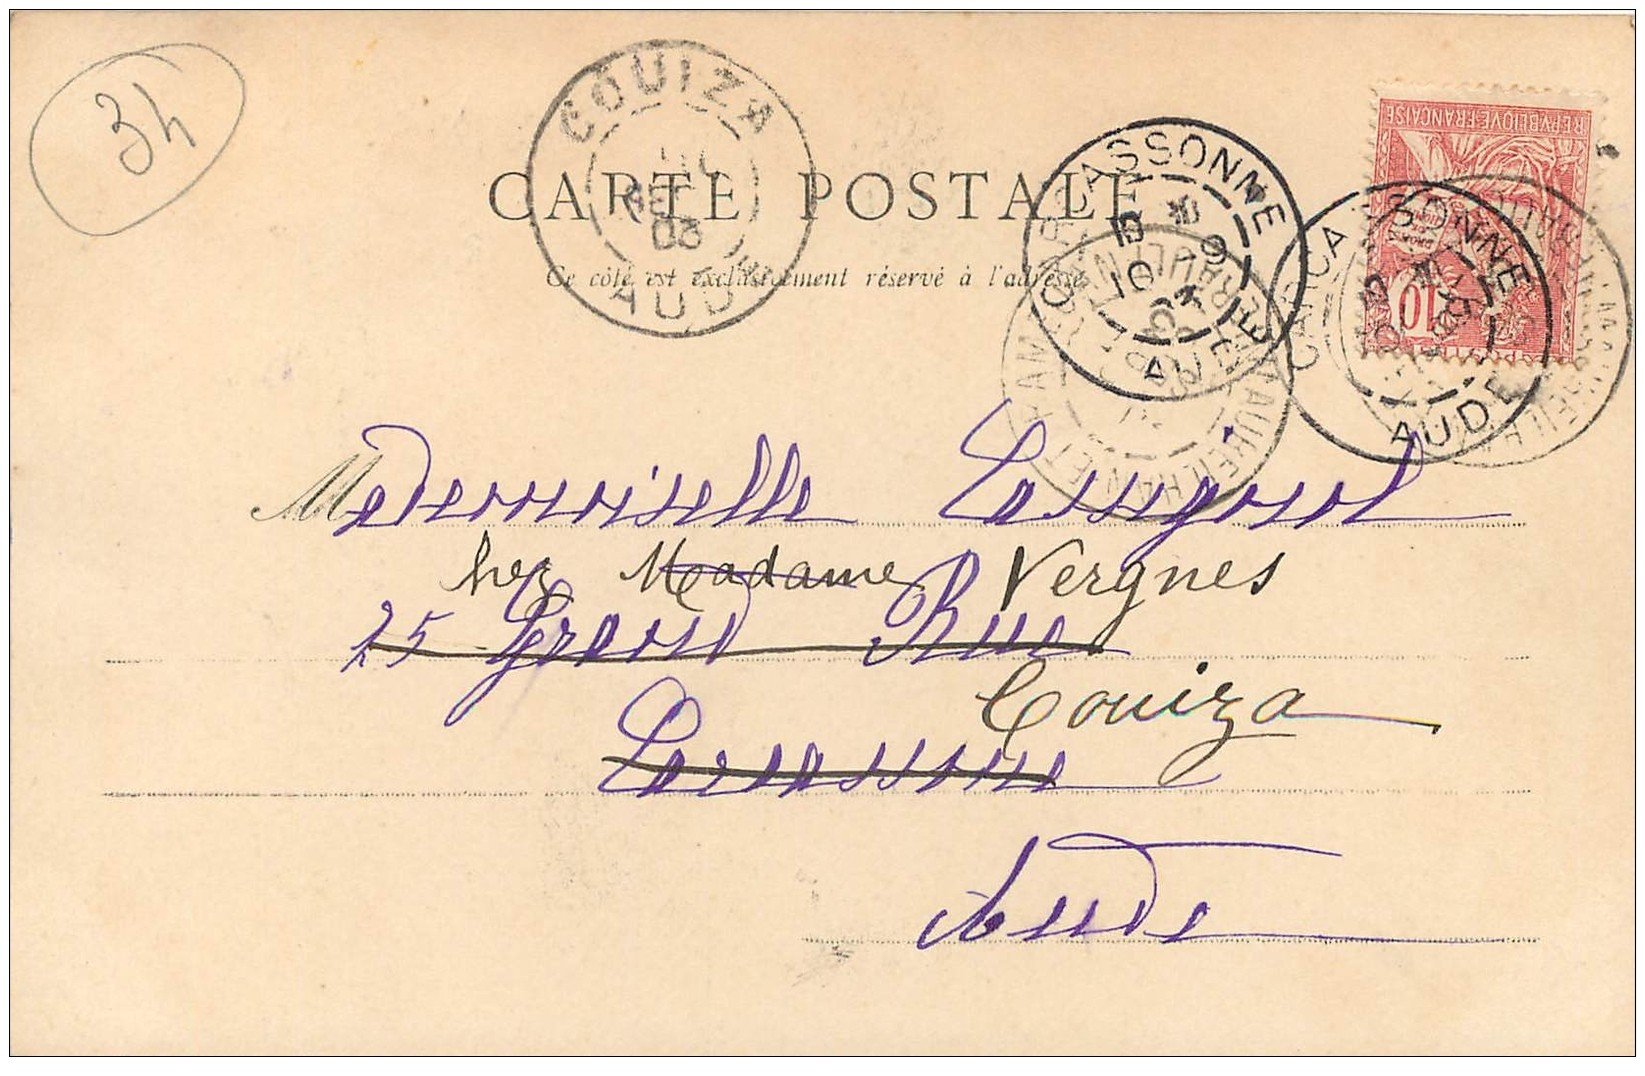 34
COUIZA
03
AUDE
CARTE POSTALE
Ce côté est exclusivement réservé à l'adresse
CARCASSONNE
10 9
03
AUDE
REPVBLIQVE FRANÇAISE
10
CARCASSONNE
AUDE
Mademoiselle Lassignol
chez Madame Vergnes
25 Grand Rue
Couiza
Carcassonne
Aude